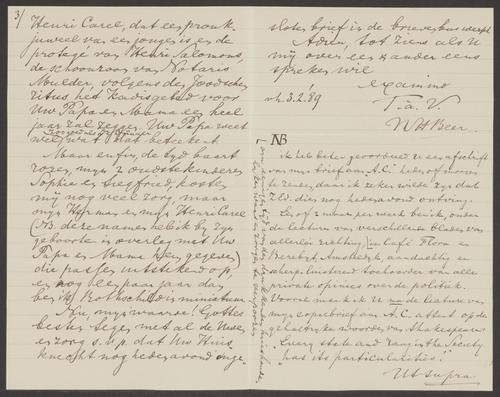 3/
Henri Carel, dat een pronk
juweel van een jongen is en de
protegé van Henri Salomons,
de schoonzoon van Notaris
Mulder, volgens den Joodschen
ritus het Kadisgebed voor
Uw Papa en Mama een heel
jaar zal zeggen. Uw Papa weet
wel, wat dat beteekent.
Maar enfin, de tijd baart
rozen, mijn 2 oudste kinderen
Sophie en Siegfried, kosten
mij nog veel zorg, maar
mijn Herman en mijn Henri Carel
(NB. deze namen heb ik bij zijn
geboorte in overleg met Uw
Papa en Mama hen gegeven)
die passen uitstekend op,
en nog een paar jaar dan
ben ik Rothschild in miniatuur
Zie, mijn waarde! Gottes
bester Segen met al de Uwen
en zorg s.v.p. dat Uw Huis
knecht nog heden avond inge-
sloten brief in de brievenbus werpt
Adieu, tot ziens als U
mij over een en ander eens
spreken wil
ex animo
T. a. V.
3.2.39
NH Beer.
NB
ik heb beter geoordeeld U een afschrift
van mijn brief aan A.C. heden of morgen
te zenden, daar ik zeker wilde zijn dat
Z.Ed. dien nog heden avond ontving.
Los of 2 maal per week ben ik, onder
de lectuur van verschillende bladen van
allerlei richting, in Café Flora en
Berebijt, Amsteldijk, aandachtig en
scherp luisterend toehoorder van alle
private opinies over de politiek.
Vooral maak ik U na de lectuur van
mijn copie brief aan A.C. attent op de
gehaltrijke woorden van Shakespeare
"Every state and rang in the Society
has its particularities!"
Ut supra